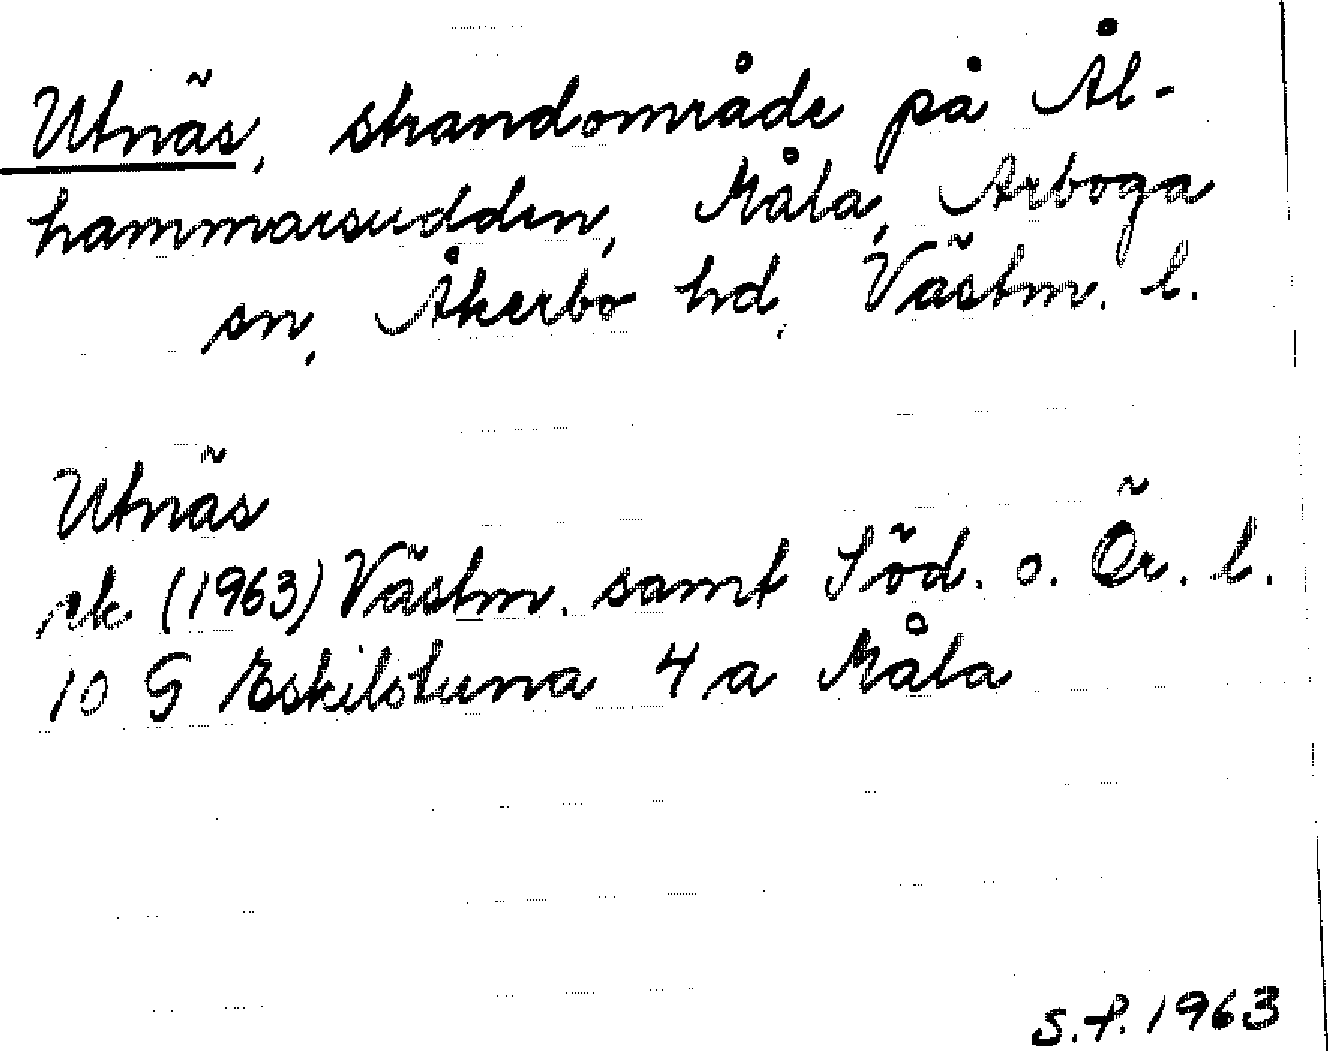 Utnäs, strandområde på Ål-
hammarsudden, Måla, Arboga
sn, Åkerbo hd, Västm. l.
Utnäs
rk (1963) Västm. samt Söd. o. Ör. l.
10 G Eskilstuna 4 a Måla
S.P. 1963